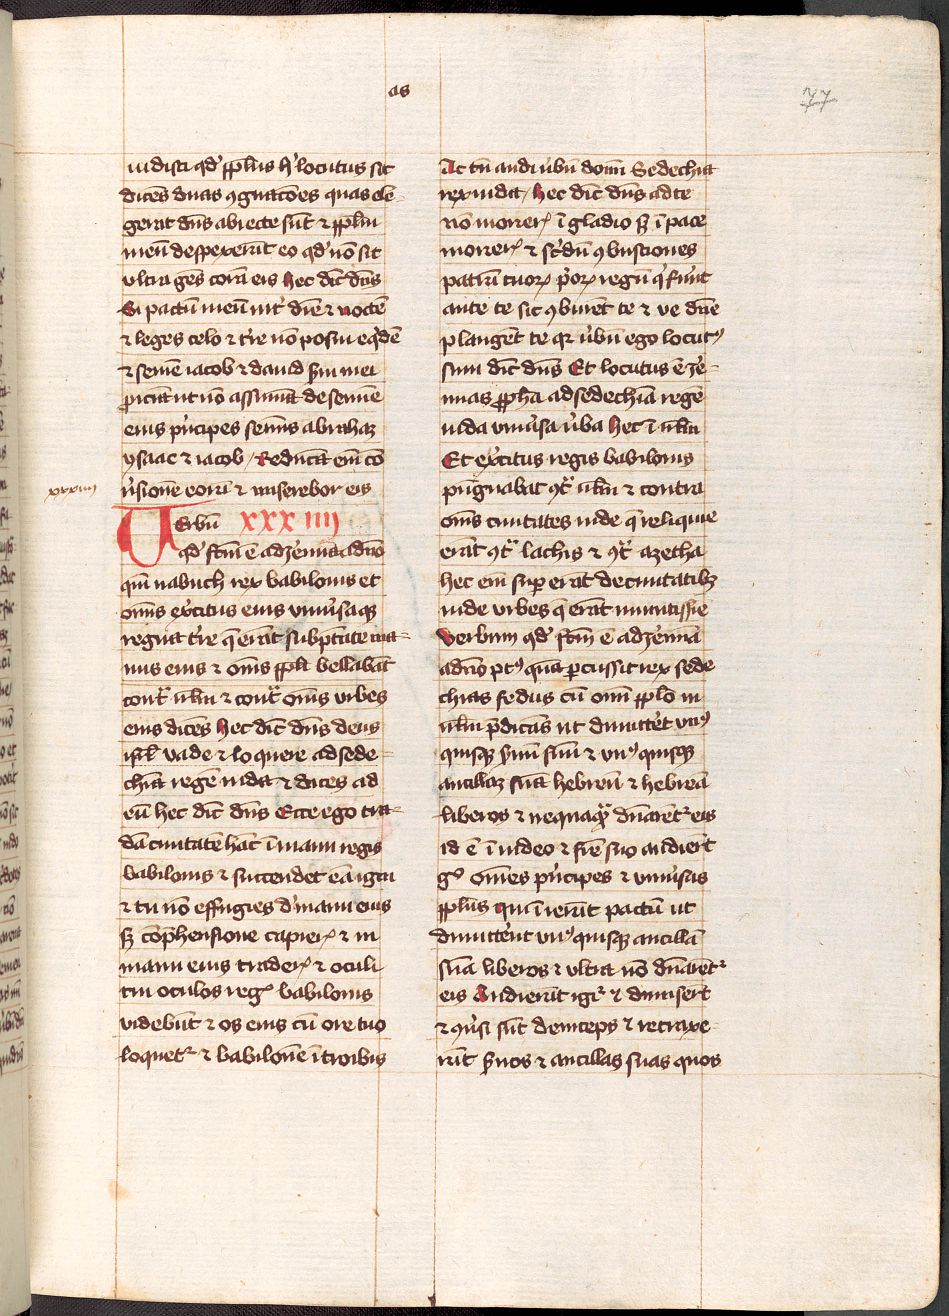 as
77
uidisti qd' pplus h' locutus sit
dicēs duas ꝯgnatōes quas ele-
gerat dn̄s abiecte sūt ⁊ pplm̄
meū despexerūt eo qd' nō sit
vltra gēs corā eis Hec dic̄ dn̄s
Si pactū meū int' diē ⁊ noctē
⁊ leges celo ⁊ t're nō posui eq'dē
⁊ semē iacob ⁊ dauid s'ui mei
ꝓiciā ut nō assumā de semīe
eius p'ncipes semīs abrahaʒ
ysaac ⁊ iacob / Reducā em̄ cō
u'sionē eorū ⁊ miserebor eis
xxxiiii
Verbū XXX IIII
qd' fc̄m ē ad ʒeremiā a dn̄o
qn̄ nabuch' rex babilonis et
om̄s ex'citus eius vniu'saqꝫ
regna t're q̄ erāt sub ptāte ma-
nus eius ⁊ om̄s ppl'i bellabāt
cont' irlm̄ ⁊ cont' om̄s vrbes
eius dicēs Hec dic̄ dn̄s deus
isrl' vade ⁊ loquere ad sede-
chiā regē iuda ⁊ dices ad
eū hec dic̄ dn̄s Ecce ego tra-
dā ciuitatē hāc ī manu regis
babilonis ⁊ succendet eā igni
⁊ tu nō effugies d' manu eius
sꝫ cōp̄hensione capier' ⁊ in
manu eius trader' ⁊ oculi
tui oculos reg' babilonis
videbūt ⁊ os eius cū ore tuo
loquet' ⁊ babilonē ītroibis
Ac tn̄ audi u'bū domī Sedechia
rex iuda / Hec dic̄ dn̄s ad te
nō morier' ī gladio sꝫ ī pace
morier' ⁊ sc'dū ꝯbustiones
patrū tuoꝝ p'oꝝ regū q' fuer̄t
ante te sic ꝯburēt te ⁊ ve dn̄e
plangēt te qr u'bū ego locut'
sum dic̄ dn̄s Et locutus ē ʒe-
mias ppha ad sedechiā regē
iuda vniu'sa u'ba hec ī irlm̄
Et ex'citus regis babilonis
pūgnabat ꝯt' irlm̄ ⁊ contra
om̄s ciuitates iude q̄ reliquie
erāt ꝯt' lachis ⁊ ꝯt' azecha
hec em̄ supererāt de ciuitatibꝫ
iude vrbes q̄ erāt munitissīe
Verbum qd' fc̄m ē ad ʒeremiā
a dn̄o pt' qua percussit rex sede
chias fedus cū om̄i pplo in
irlm̄ p̄dicās ut dimittēt vn'
quisqꝫ s'uū suū ⁊ vn' quisqꝫ
ancillaꝫ suā hebreū ⁊ hebreā
liberos ⁊ nequaqꝫ dn̄arēt' eis
id ē ī iudeo ⁊ fr̄e suo audier̄t
g° om̄es p'ncipes ⁊ vniu'sus
pplus qui īierūt pactū ut
dimittēnt vn' quisqꝫ ancillā
suā liberos ⁊ vltra nō dn̄arēt'
eis Audierūt igr' ⁊ dimiser̄t
⁊ ꝯu'si sūt deinceps ⁊ retraxe-
rūt s'uos ⁊ ancillas suas quos